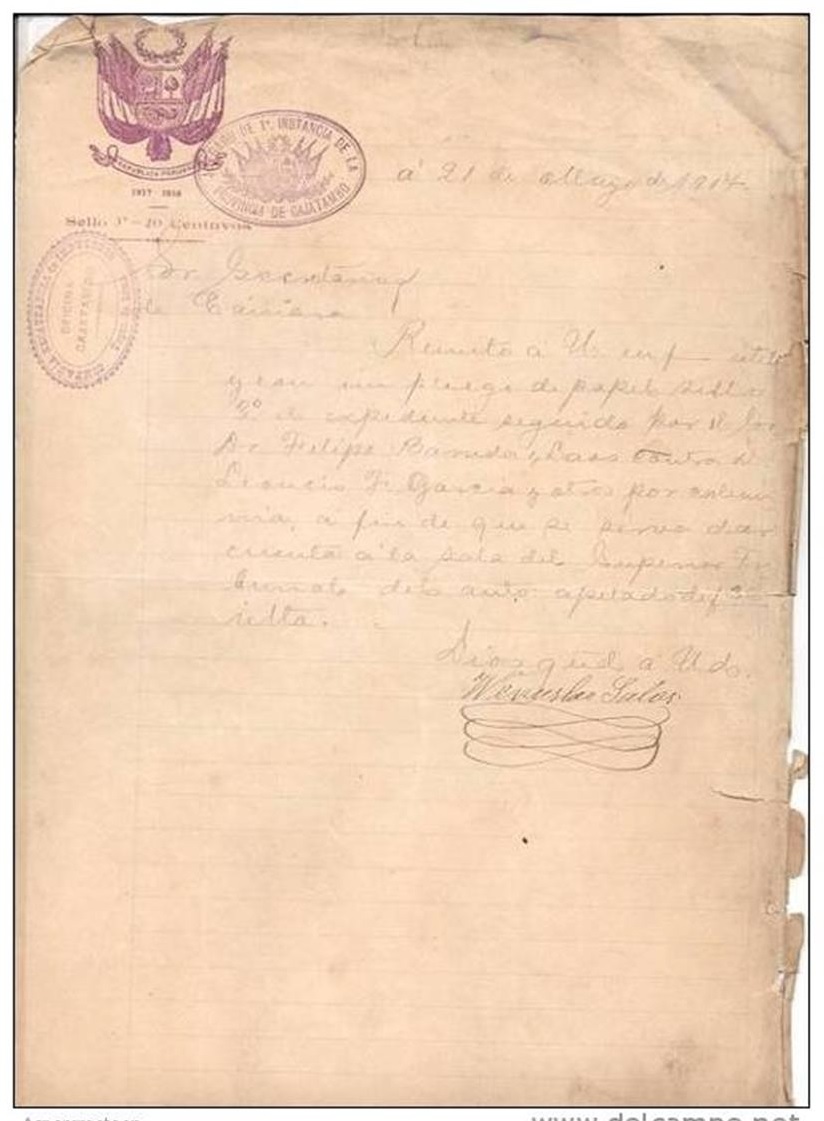 REPUBLICA PERUANA
1917 - 1918
Sello 3º - 20 Centavos
DE 1ª. INSTANCIA DE LA
PROVINCIA DE CAJATAMBO
OFICINA
CAJATAMBO
á 21 de Mayo de 191
Sr. Secretario
de Cámara
Remito á U. en
y con un pliego de papel sello
3º el expediente seguido por el
Dr Felipe Barreda y Laos contra
Leoncio F. Garcia y otros por calum
nia, a fin de que se sirva dar
cuenta á la Sala del Superior Tri
bunal del auto apelado de f
vuelta.
Dios gûe á Uds.
Wenceslao Salas
www.delcampe.net